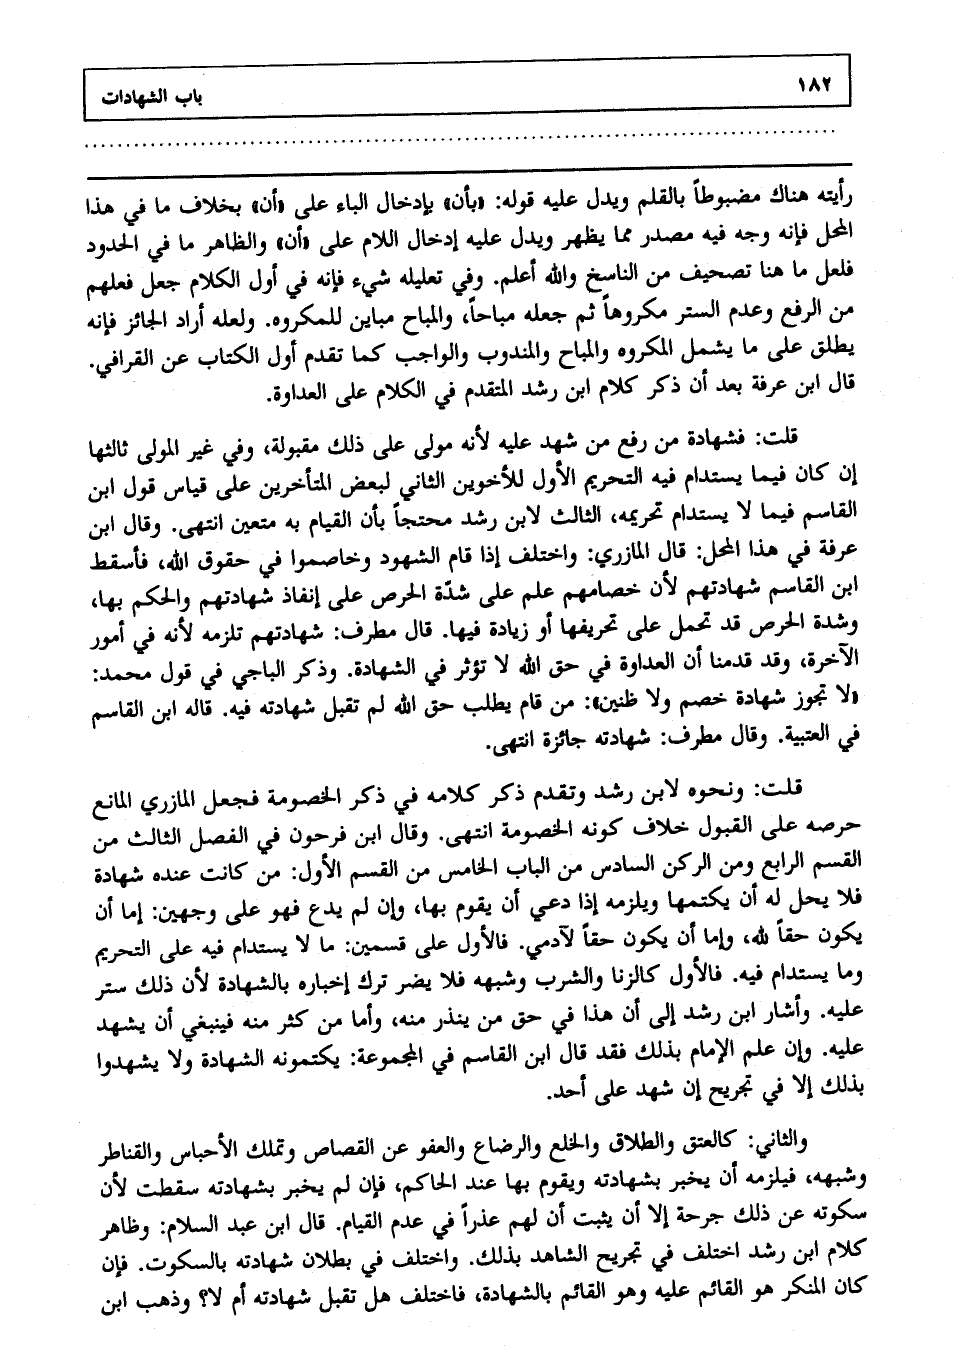 ١٨٢
باب الشهادات
رأيته هناك مضبوطاً بالقلم ويدل عليه قوله: «بأن» بإدخال الباء على «أن» بخلاف ما في هذا
المحل فإنه وجه فيه مصدر مما يظهر ويدل عليه إدخال اللام على «أن» والظاهر ما في الحدود
فلعل ما هنا تصحيف من الناسخ والله أعلم. وفي تعليله شيء فإنه في أول الكلام جعل فعلهم
من الرفع وعدم الستر مكروهاً ثم جعله مباحاً، والمباح مباين للمكروه. ولعله أراد الجائز فإنه
يطلق على ما يشمل المكروه والمباح والمندوب والواجب كما تقدم أول الكتاب عن القرافي.
قال ابن عرفة بعد أن ذكر كلام ابن رشد المتقدم في الكلام على العداوة.
قلت: فشهادة من رفع من شهد عليه لأنه مولى على ذلك مقبولة، وفي غير المولى ثالثها
إن كان فيما يستدام فيه التحريم الأول للأخوين الثاني لبعض المتأخرين على قياس قول ابن
القاسم فيما لا يستدام تحريمه، الثالث لابن رشد محتجاً بأن القيام به متعين انتهى. وقال ابن
عرفة في هذا المحل: قال المازري: واختلف إذا قام الشهود وخاصموا في حقوق الله، فأسقط
ابن القاسم شهادتهم لأن خصامهم علم على شدّة الحرص على إنفاذ شهادتهم والحكم بها،
وشدة الحرص قد تحمل على تحريفها أو زيادة فيها. قال مطرف: شهادتهم تلزمه لأنه في أمور
الآخرة، وقد قدمنا أن العداوة في حق الله لا تؤثر في الشهادة. وذكر الباجي في قول محمد:
«لا تجوز شهادة خصم ولا ظنين»: من قام يطلب حق الله لم تقبل شهادته فيه. قاله ابن القاسم
في العتبية. وقال مطرف: شهادته جائزة انتهى.
قلت: ونحوه لابن رشد وتقدم ذكر كلامه في ذكر الخصومة فجعل المازري المانع
حرصه على القبول خلاف كونه الخصومة انتهى. وقال ابن فرحون في الفصل الثالث من
القسم الرابع ومن الركن السادس من الباب الخامس من القسم الأول: من كانت عنده شهادة
فلا يحل له أن يكتمها ويلزمه إذا دعي أن يقوم بها، وإن لم يدع فهو على وجهين: إما أن
يكون حقاً لله، وإما أن يكون حقاً لآدمي. فالأول على قسمين: ما لا يستدام فيه على التحريم
وما يستدام فيه. فالأول كالزنا والشرب وشبهه فلا يضر ترك إخباره بالشهادة لأن ذلك ستر
عليه. وأشار ابن رشد إلى أن هذا في حق من ينذر منه، وأما من كثر منه فينبغي أن يشهد
عليه. وإن علم الإمام بذلك فقد قال ابن القاسم في المجموعة: يكتمونه الشهادة ولا يشهدوا
بذلك إلا في تجريح إن شهد على أحد.
والثاني: كالعتق والطلاق والخلع والرضاع والعفو عن القصاص وتملك الأحباس والقناطر
وشبهه، فيلزمه أن يخبر بشهادته ويقوم بها عند الحاكم، فإن لم يخبر بشهادته سقطت لأن
سكوته عن ذلك جرحة إلا أن يثبت أن لهم عذراً في عدم القيام. قال ابن عبد السلام: وظاهر
كلام ابن رشد اختلف في تجريح الشاهد بذلك. واختلف في بطلان شهادته بالسكوت. فإن
كان المنكر هو القائم عليه وهو القائم بالشهادة، فاختلف هل تقبل شهادته أم لا؟ وذهب ابن